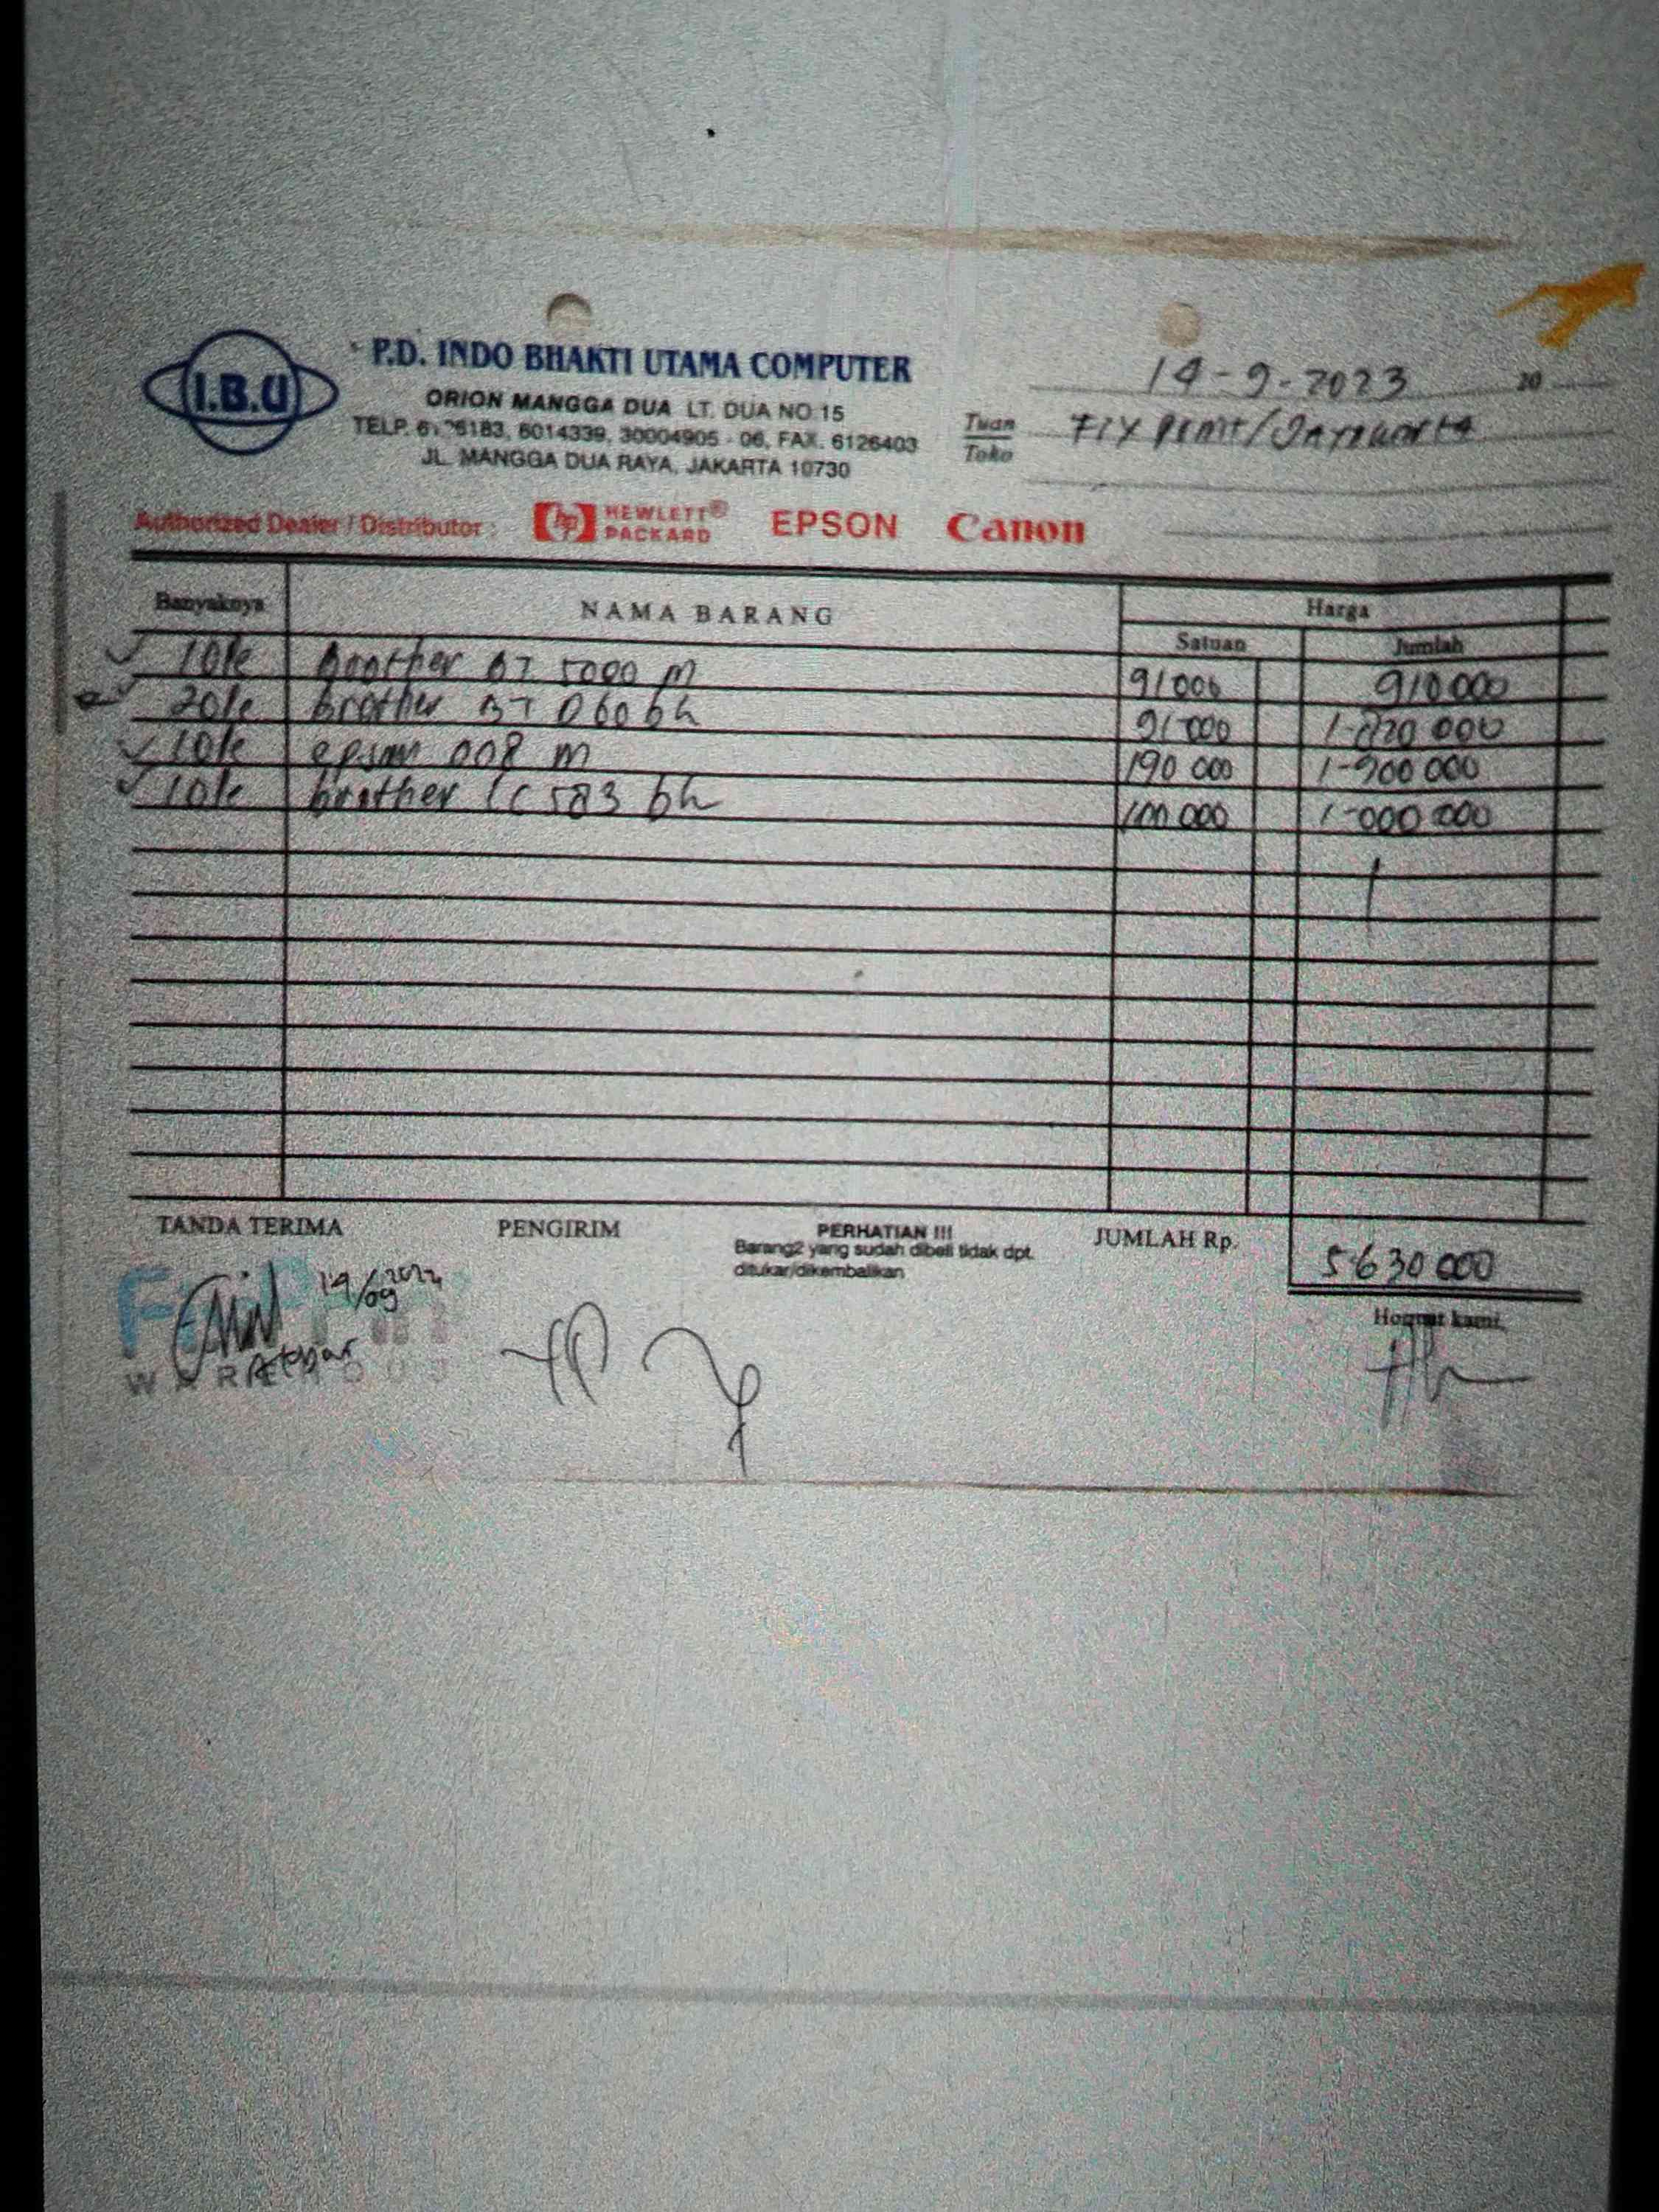 I.B.U
P.D. INDO BHAKTI UTAMA COMPUTER
ORION MANGGA DUA LT. DUA NO 15
TELP. 6126183, 6014339, 30004905 - 06, FAX. 6126403
JL. MANGGA DUA RAYA, JAKARTA 10730
14-9-2023 20
Tuan
Toko
Authorized Dealer / Distributor : hp HEWLETT® PACKARD EPSON Canon
Banyaknya NAMA BARANG Harga
Satuan Jumlah
brother BT 5000 M 91000 910000
brother BT D60 bk 91000 1-820 000
epson 008 m 190 000 1-900 000
brother lc 583 bk 100 000 1-000 000
TANDA TERIMA PENGIRIM PERHATIAN !!! JUMLAH Rp. 5630 000
Barang2 yang sudah dibeli tidak dpt.
ditukar/dikembalikan
Hormat kami,
Akbar